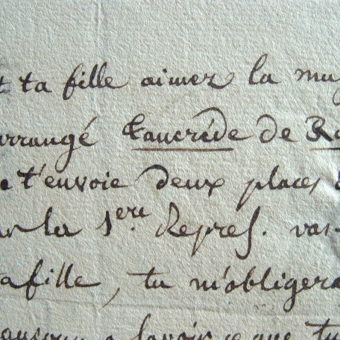 t ta fille aimez la mu
arrangé Tancrède de Ro
e t'envoie deux places
ur la 1ere Repres. vas-
ta fille, tu m'obligera
savoir ce que tu